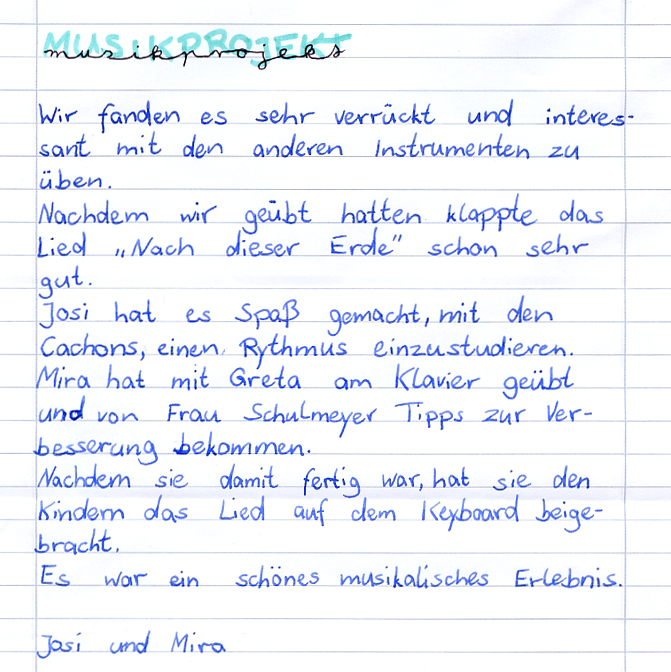 MUSIKPROJEKT
musikprojekt
Wir fanden es sehr verrückt und interes-
sant mit den anderen Instrumenten zu
üben.
Nachdem wir geübt hatten klappte das
Lied „Nach dieser Erde" schon sehr
gut.
Josi hat es Spaß gemacht, mit den
Cachons, einen Rythmus einzustudieren.
Mira hat mit Greta am Klavier geübt
und von Frau Schulmeyer Tipps zur Ver-
besserung bekommen.
Nachdem sie damit fertig war, hat sie den
Kindern das Lied auf dem Keyboard beige-
bracht.
Es war ein schönes musikalisches Erlebnis.
Josi und Mira